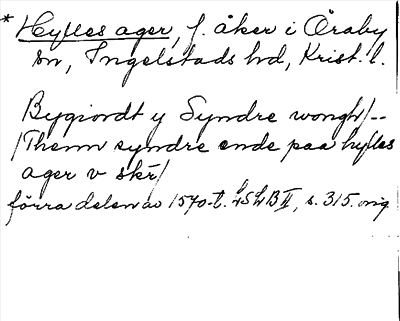 * Hylles ager, f. åker i Öraby
sn, Ingelstads hd, Krist. l.
Bygiordt y Syndre wongh/--
/Thenn syndre ende paa hylles
ager v skr/
förra delen av 1570-t. LSLB II, s. 315. orig